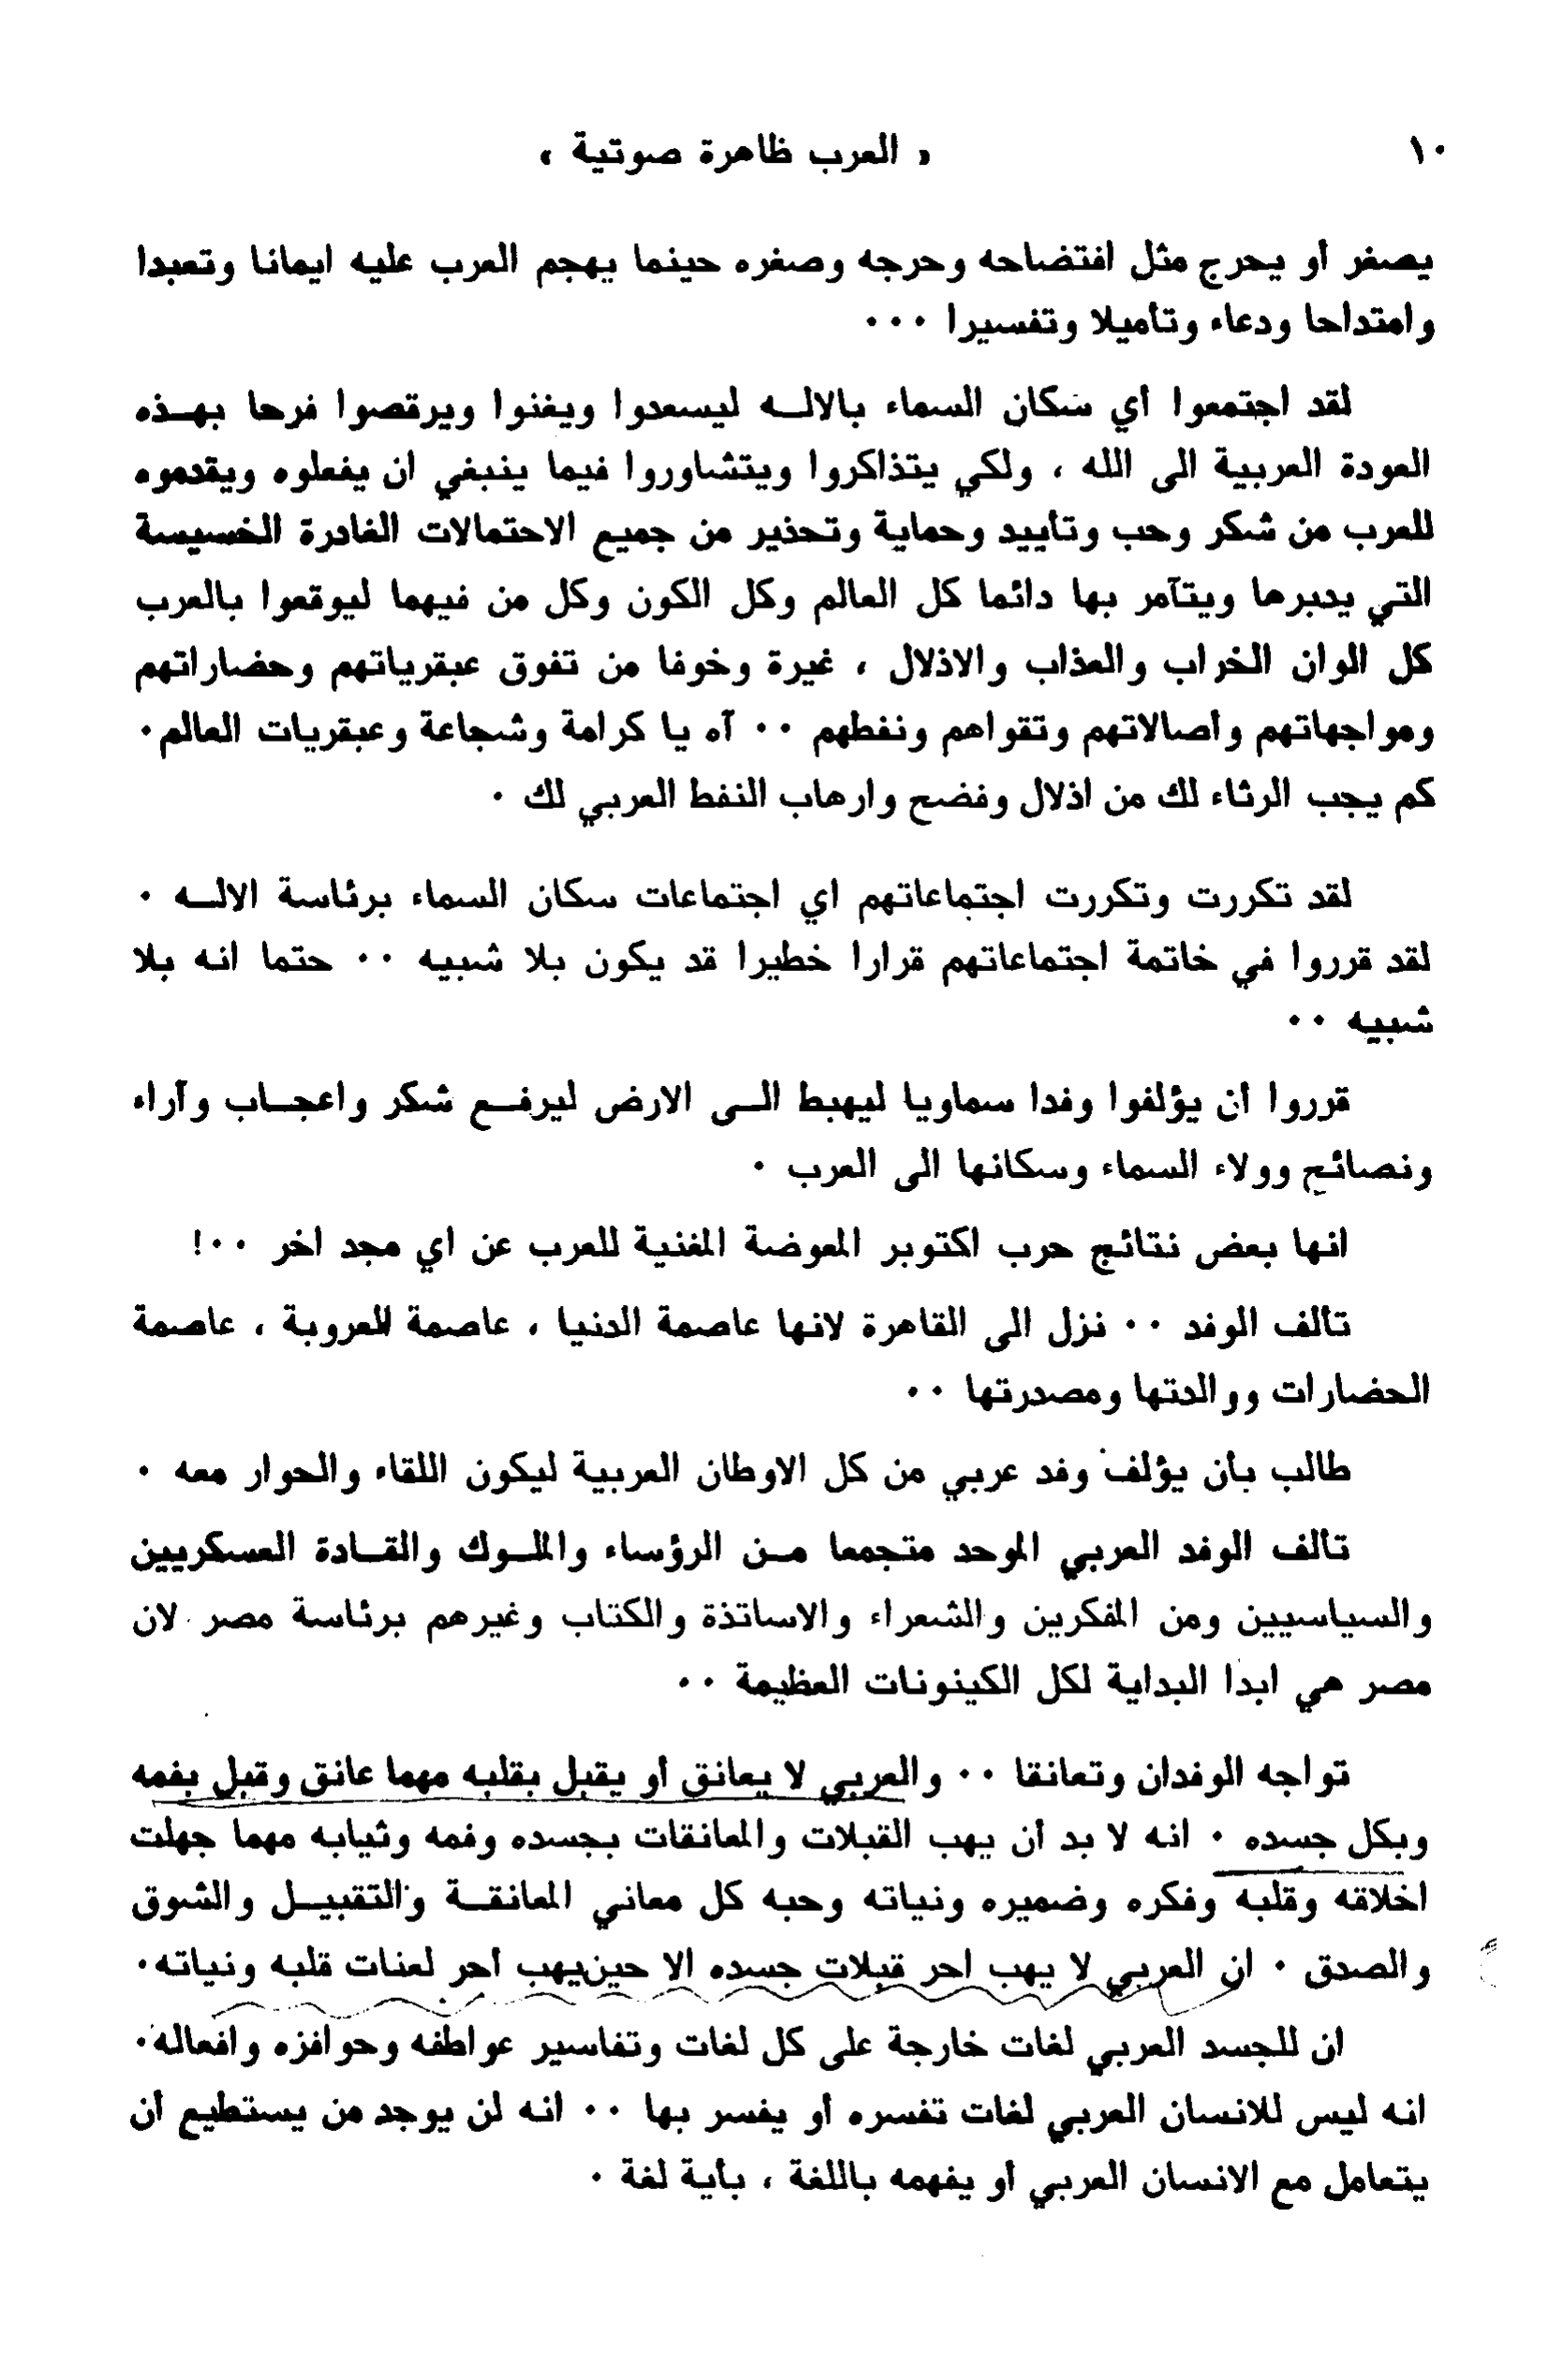 ١٠
« العرب ظاهرة صوتية »
يصغر أو يحرج مثل افتضاحه وحرجه وصغره حينما يهجم العرب عليه ايمانا وتعبدا
وامتداحا ودعاء وتأميلا وتفسيرا ٠٠٠
لقد اجتمعوا أي سكان السماء بالالـه ليسعدوا ويغنوا ويرقصوا فرحا بهـذه
العودة العربية الى الله ، ولكي يتذاكروا ويتشاوروا فيما ينبغي ان يفعلوه ويقدموه
للعرب من شكر وحب وتأييد وحماية وتحذير من جميع الاحتمالات الغادرة الخسيسة
التي يدبرها ويتآمر بها دائما كل العالم وكل الكون وكل من فيهما ليوقعوا بالعرب
كل الوان الخراب والعذاب والاذلال ، غيرة وخوفا من تفوق عبقرياتهم وحضاراتهم
ومواجهاتهم واصالاتهم وتقواهم ونفطهم ٠٠ آه يا كرامة وشجاعة وعبقريات العالم٠
كم يجب الرثاء لك من اذلال وفضح وارهاب النفط العربي لك ٠
لقد تكررت وتكررت اجتماعاتهم اي اجتماعات سكان السماء برئاسة الالـه ٠
لقد قرروا في خاتمة اجتماعاتهم قرارا خطيرا قد يكون بلا شبيه ٠٠ حتما انه بلا
شبيه ٠٠
قرروا أن يؤلفوا وفدا سماويا ليهبط الـى الارض ليرفـع شكر واعجـاب وآراء
ونصائح وولاء السماء وسكانها الى العرب ٠
انها بعض نتائج حرب اكتوبر المعوضة المغنية للعرب عن اي مجد اخر ٠٠!
تألف الوفد ٠٠ نزل الى القاهرة لانها عاصمة الدنيا ، عاصمة للعروبة ، عاصمة
الحضارات ووالدتها ومصدرتها ٠٠
طالب بان يؤلف وفد عربي من كل الاوطان العربية ليكون اللقاء والحوار معه ٠
تألف الوفد العربي الموحد متجمعا مـن الرؤساء والملـوك والقـادة العسكريين
والسياسيين ومن المفكرين والشعراء والاساتذة والكتاب وغيرهم برئاسة مصر لان
مصر هي ابدا البداية لكل الكينونات العظيمة ٠٠
تواجه الوفدان وتعانقا ٠٠ والعربي لا يعانق أو يقبل بقلبه مهما عانق وقبل بفمه
وبكل جسده ٠ انه لا بد أن يهب القبلات والمعانقات بجسده وفمه وثيابه مهما جهلت
اخلاقه وقلبه وفكره وضميره ونياته وحبه كل معاني المعانقـة والتقبيـل والشوق
والصدق ٠ ان العربي لا يهب احر قبلات جسده الا حين يهب أحر لعنات قلبه ونياته٠
ان للجسد العربي لغات خارجة على كل لغات وتفاسير عواطفه وحوافزه وافعاله٠
انه ليس للانسان العربي لغات تفسره أو يفسر بها ٠٠ انه لن يوجد من يستطيع أن
يتعامل مع الانسان العربي أو يفهمه باللغة ، بأية لغة ٠